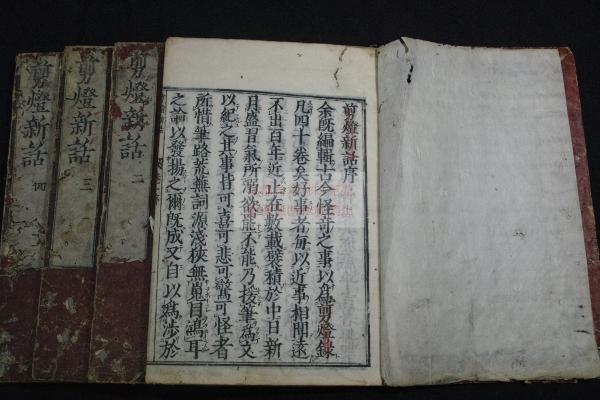 剪燈新話序
余既編輯古今怪奇之事以爲剪燈錄
凡四十卷矣好事者每以近事相聞遠
不出百年近止在數載襞積於中日新
月盛習氣所溺欲罷不能乃援筆爲文
以紀之其事皆可喜可悲可驚可怪者
所惜筆路荒無詞源淺狹無嵬目鴻耳
之論以發揚之爾既成又自以爲涉於
剪燈新話 二
剪燈新話 三
剪燈新話 四